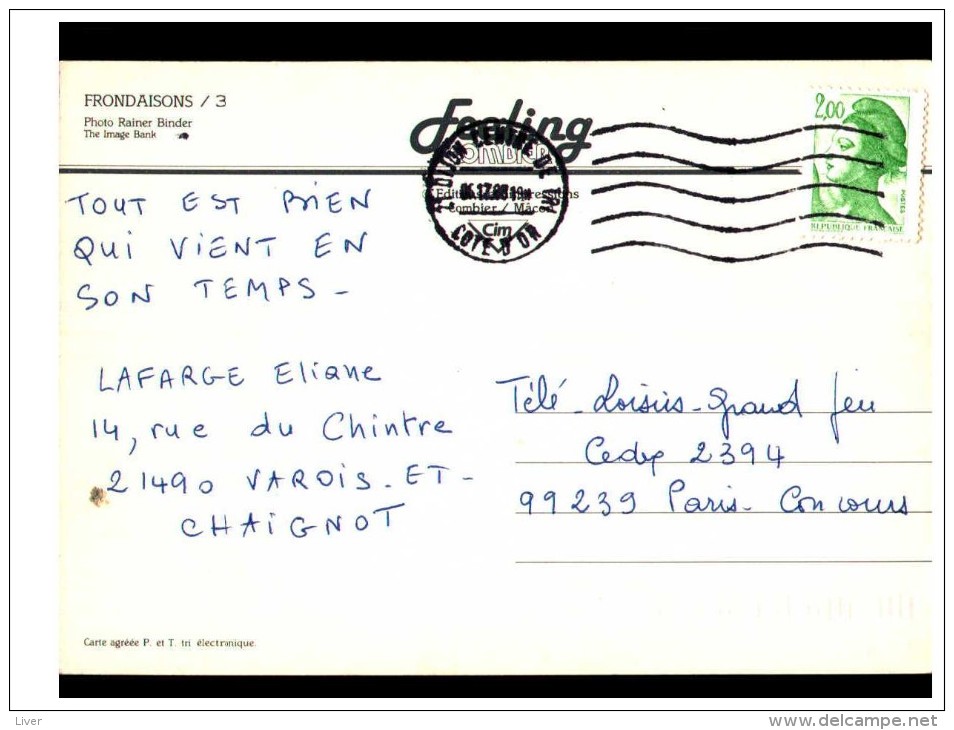 FRONDAISONS / 3
Photo Rainer Binder
The Image Bank
Feeling
COMBIER
Editions
Combier / Mâcon
Cim
DIJON CENTRE DE TRI
COTE D'OR
2,00
POSTES
REPUBLIQUE FRANÇAISE
TOUT EST BIEN
QUI VIENT EN
SON TEMPS -
LAFARGE Eliane
14, rue du Chintre
21490 VAROIS - ET -
CHAIGNOT
Télé - Loisirs - grand jeu
Cedex 2394
99239 Paris - Concours
Carte agréée P. et T. tri électronique.
Liver
www.delcampe.net